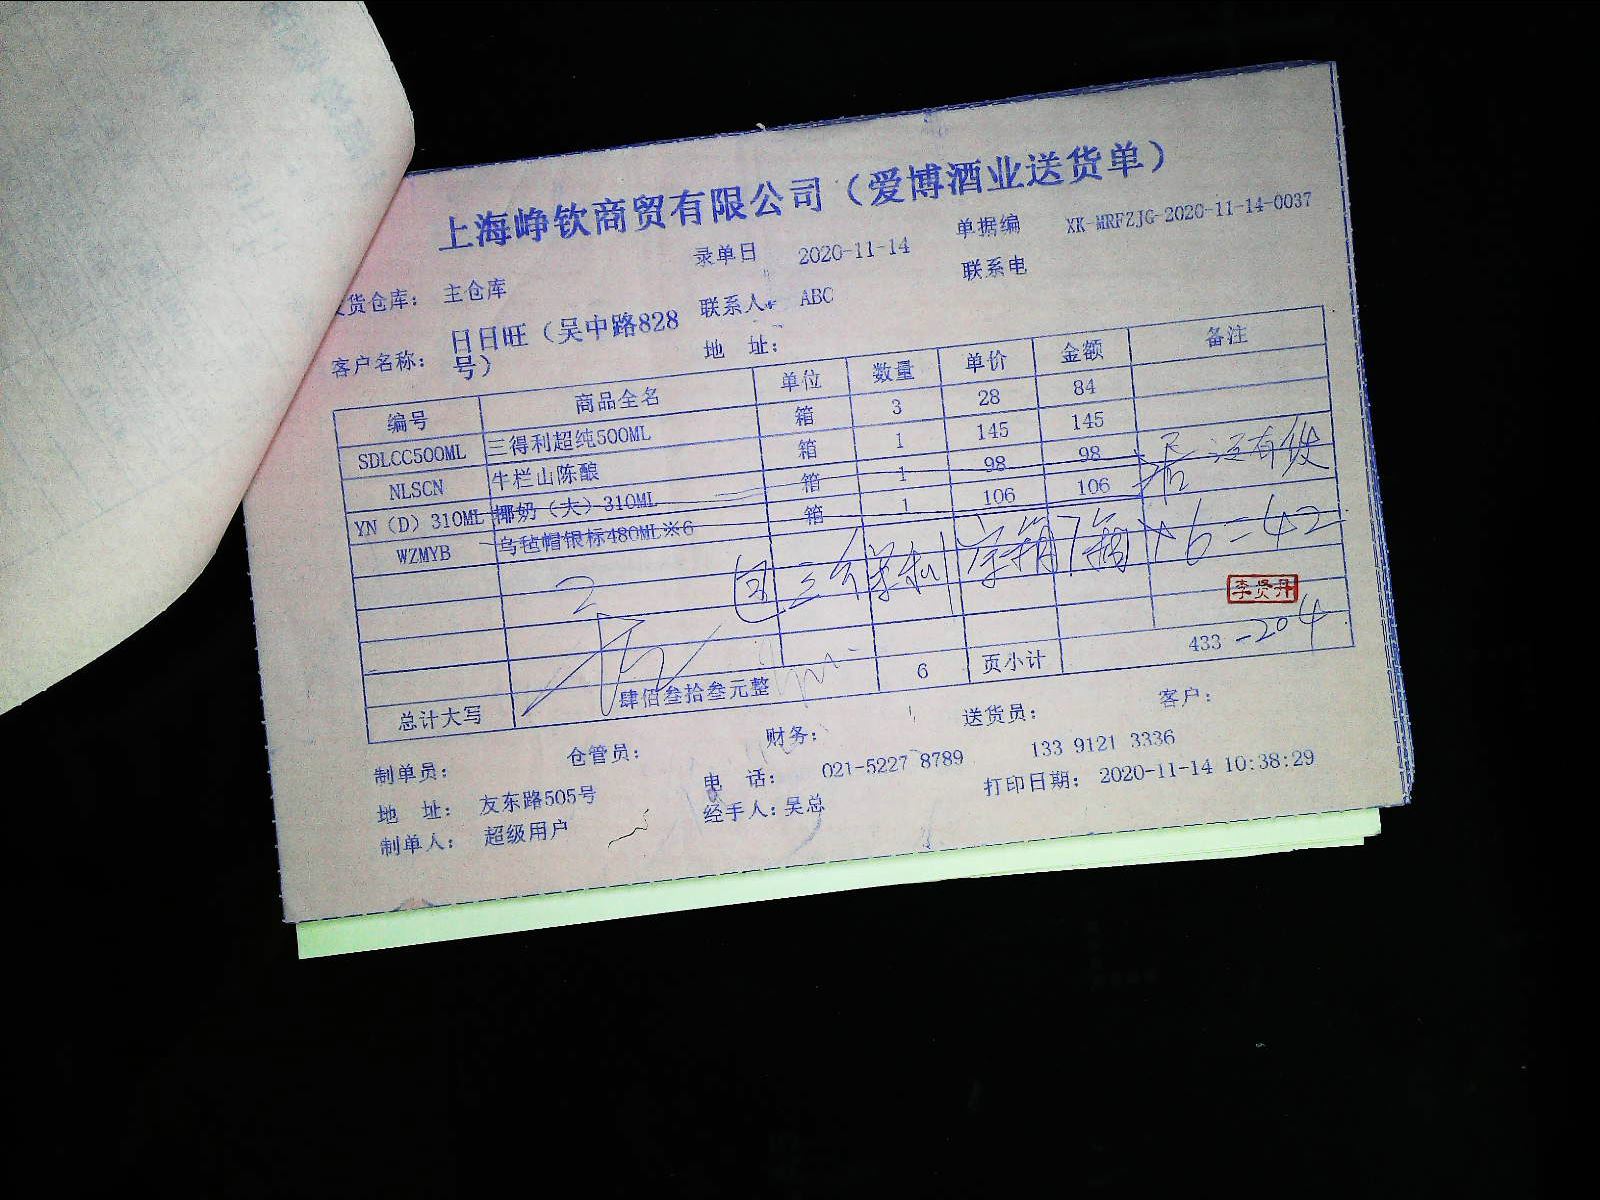 上海峥钦商贸有限公司（爱博酒业送货单）
货仓库： 主仓库 录单日 2020-11-14 单据编 XK-MRFZJG-2020-11-14-0037
客户名称： 日日旺（吴中路828号） 联系人： ABC 联系电
地 址：
编号 商品全名 单位 数量 单价 金额 备注
SDLCC500ML 三得利超纯500ML 箱 3 28 84
NLSCN 牛栏山陈酿 箱 1 145 145
YN（D）310ML 椰奶（大）310ML 箱 1 98 98
WZMYB 乌毡帽银标480ML※6 箱 1 106 106
还有
2 回三个 空箱7箱×6=42
李贤丹
总计大写 肆佰叁拾叁元整 6 页小计 433 -204
制单员： 仓管员： 财务： 送货员： 客户：
地 址： 友东路505号 电 话： 021-5227 8789 133 9121 3336
制单人： 超级用户 经手人：吴总 打印日期： 2020-11-14 10:38:29